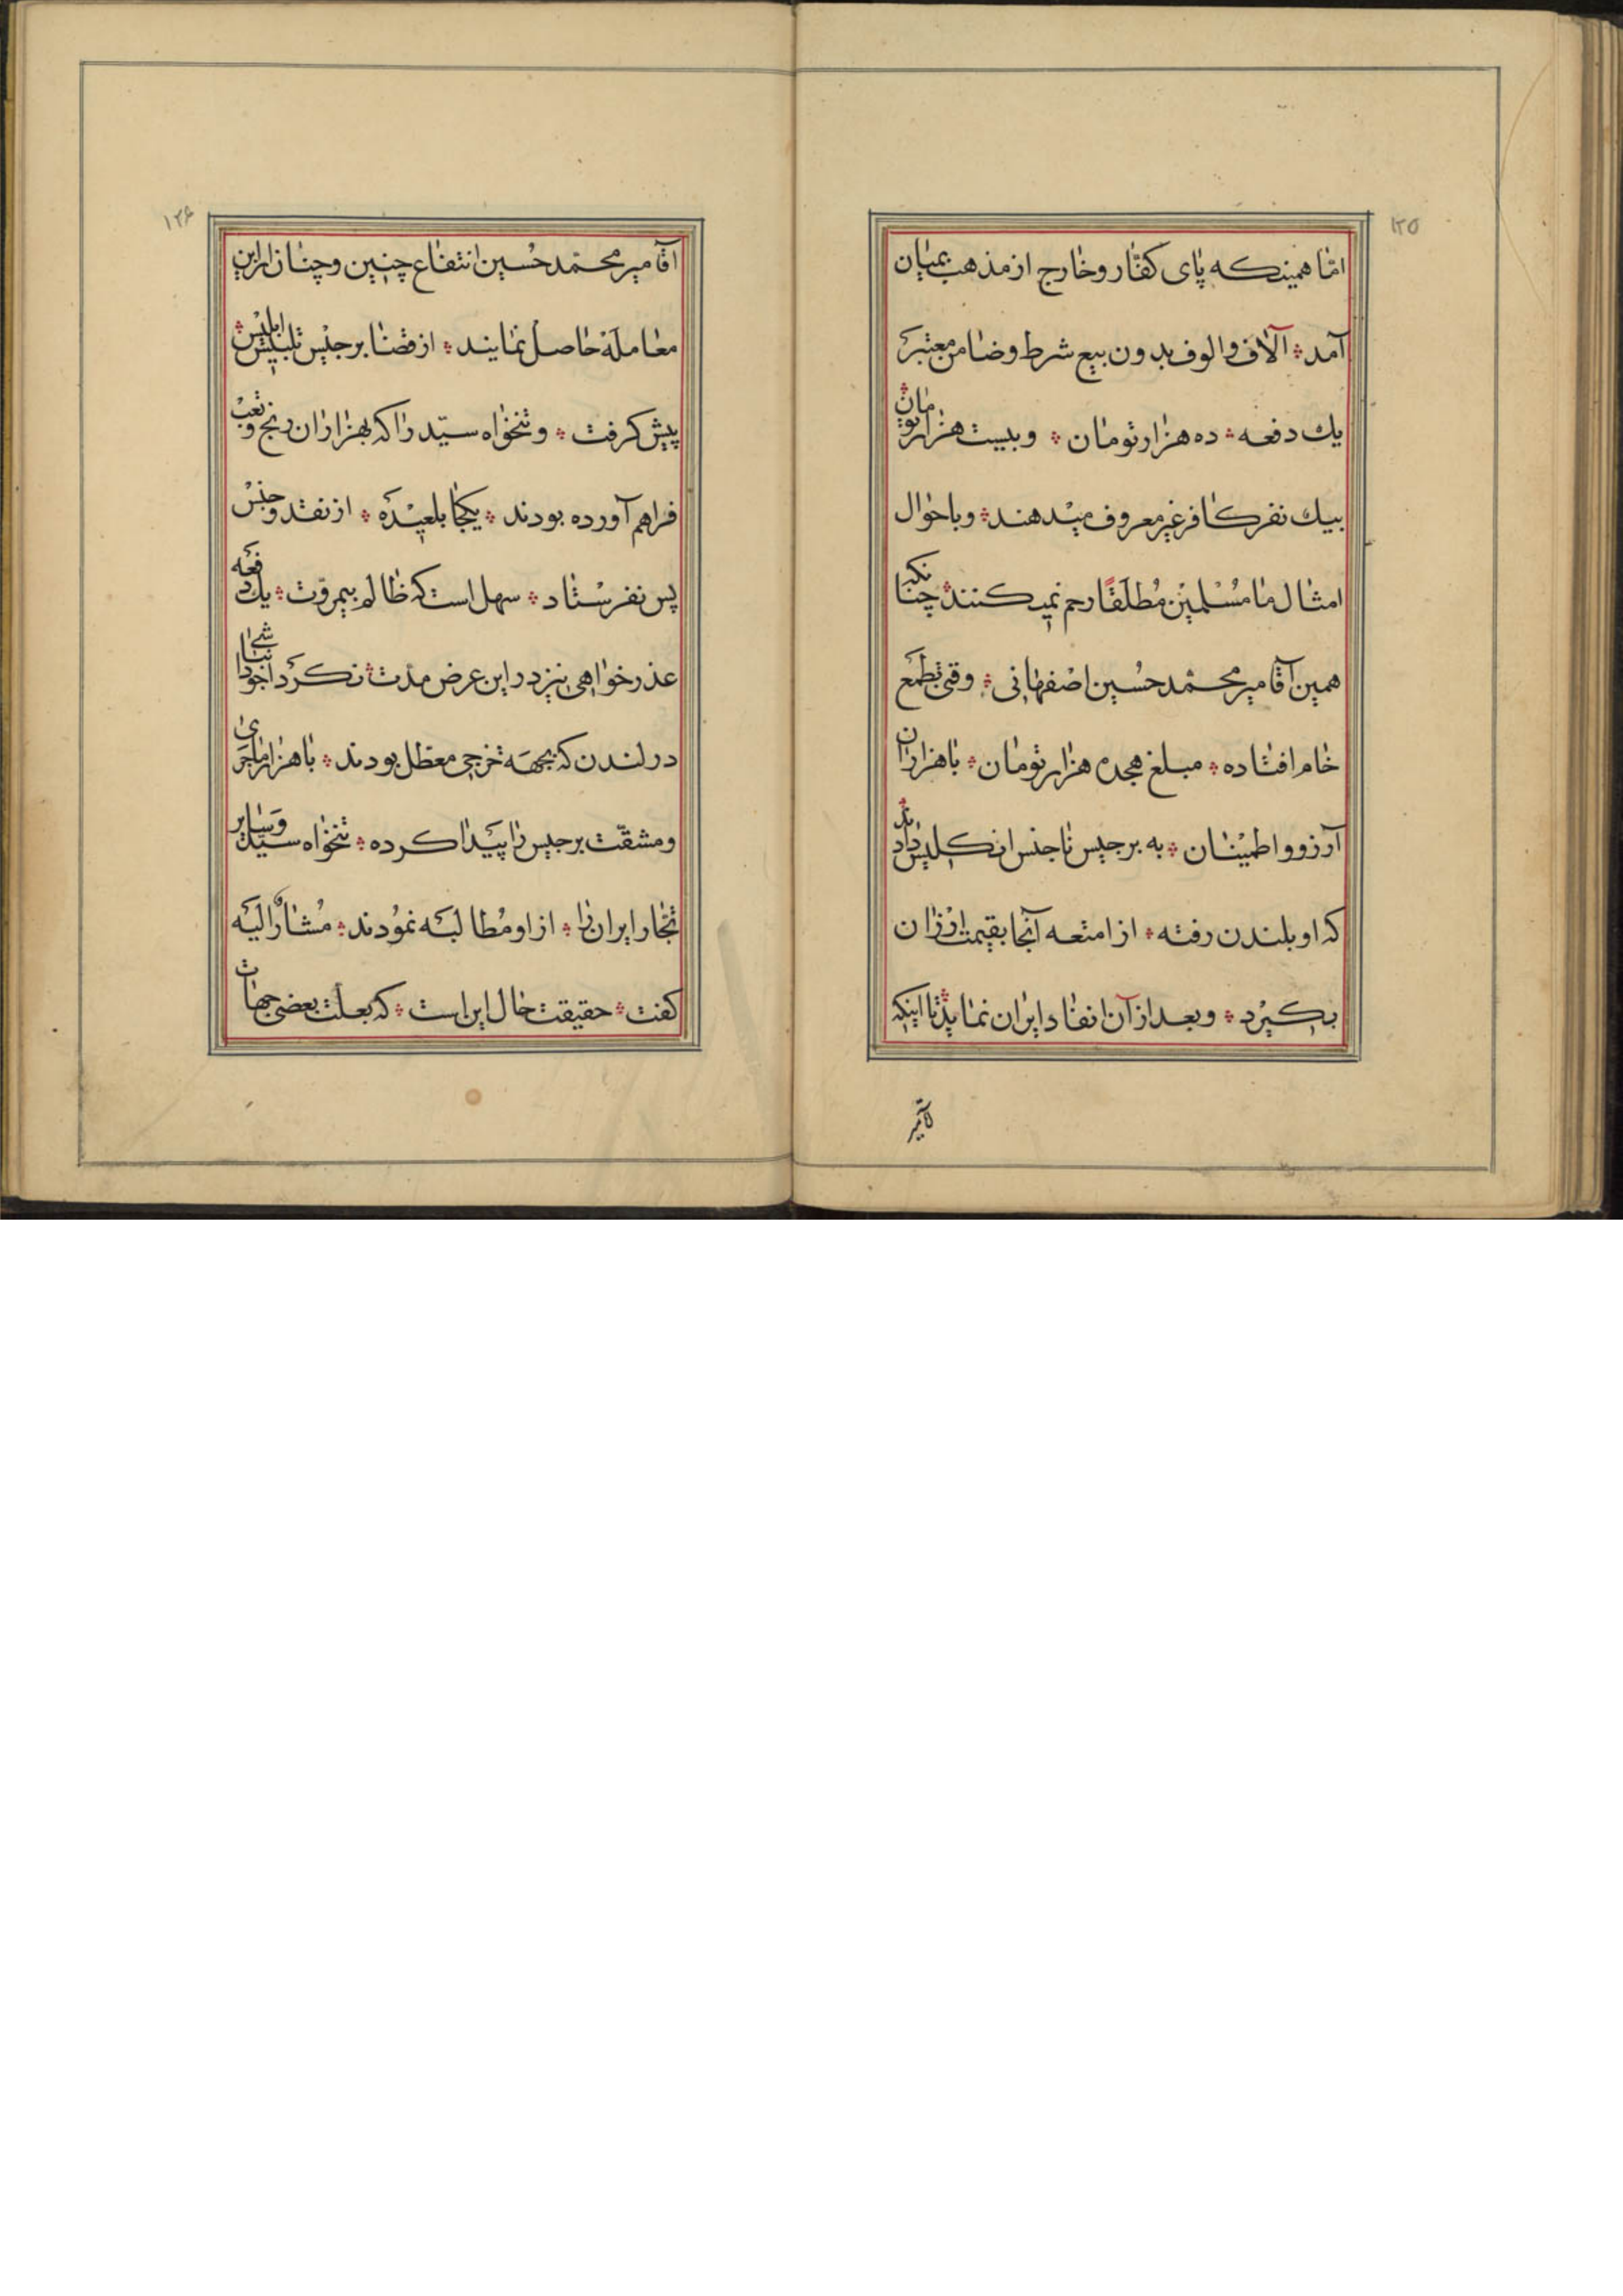 ۱۲۵
امّا همینکه پای کفّار و خارج از مذهب بمیان
آمد آلاف والوف بدون بیع شرط وضامن معتبر
یك دفعه ده هزار تومان و بیست هزار تومان
بیك نفر کافر غیر معروف میدهند و باحوال
امثال ما مُسْلمیْن مُطلَقًا رحم نمیکنند چنانکه
همین آقا میر محمّد حُسین اصْفهانی وقتی بطمع
خام افتاده مبلغ هجده هزار تومان با هزاران
آرزو و اطمیْنان به برجیس ناجنس انکلیس دادند
که او بلندن رفته از امتعه آنجا بقیمت ارزان
بکیرد و بعد از آن انفاد ایران نماید تا اینکه
آقامیر
۱۲۶
آقا میر محمّد حُسین انتفاع چنین و چنان از این
معامله حاصل نمایند از قضا برجیس تلبیس ابلیس
پیش کرفت و تنخواه سیّد را که بهزاران رنج و تعب
فراهم آورده بودند یکجا بلعیده از نقد و جنس
پس نفرسْتاد سهل است که ظالم بیمروّت یك دفعه
عذر خواهی نیز در این عرض مدّت نکرد
در لندن که بجهه خرجی معطّل بودند با هزار ماجرای
ومشقّت برجیس را پَیدا کرده تنخواه سیّد و سایر
تجّار ایران را از او مُطالبه نموُدند مُشارٌ الیَه
کفت حقیقت حال این است که بعلّت بعضی جهات